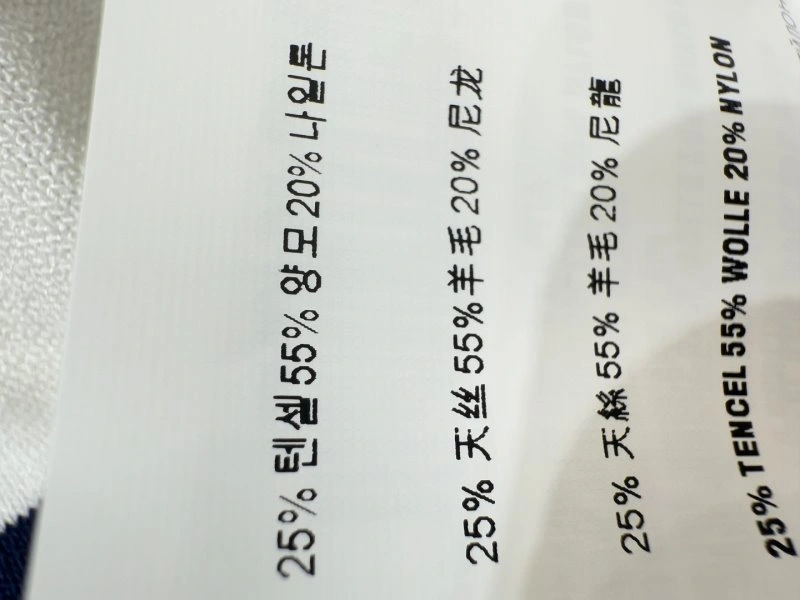 25% 텐셀 55% 양모 20% 나일론
25% 天丝 55% 羊毛 20% 尼龙
25% 天絲 55% 羊毛 20% 尼龍
25% TENCEL 55% WOLLE 20% NYLON